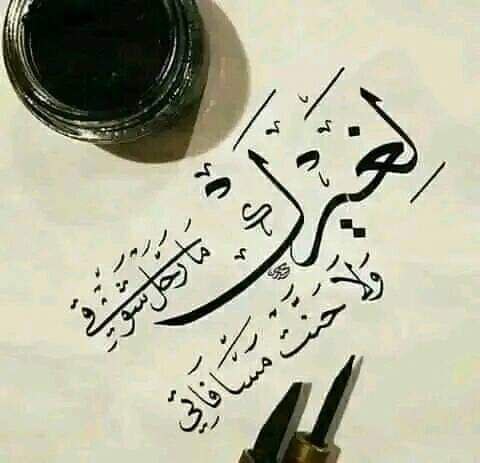 لغيرك
ما رحل شوقي
ولا حنت مسافاتي